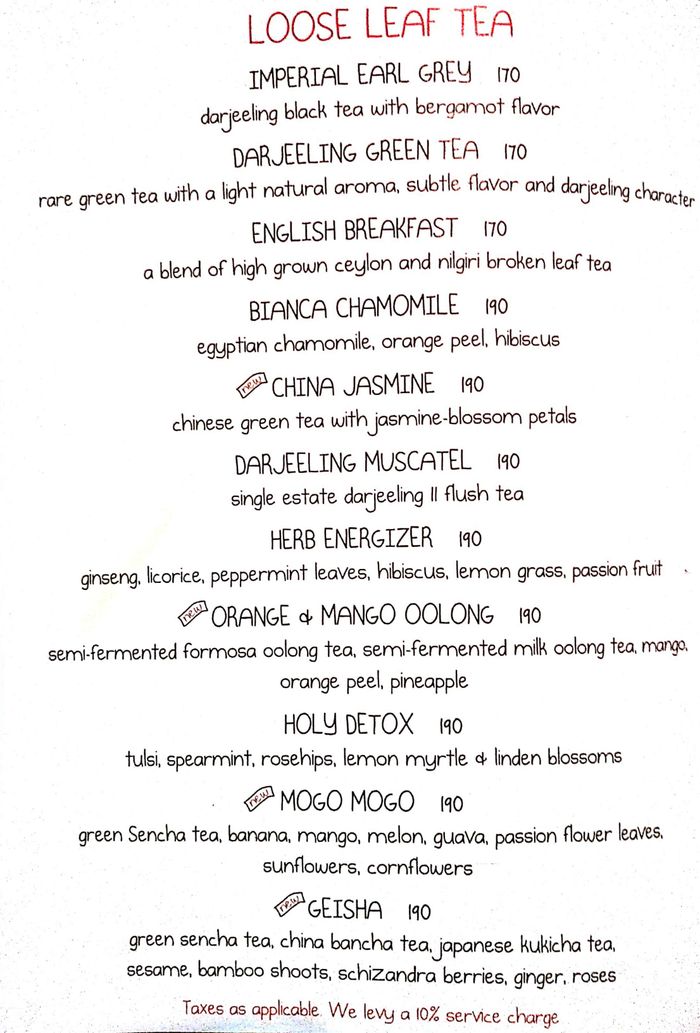 LOOSE LEAF TEA
IMPERIAL EARL GREY 170
darjeeling black tea with bergamot flavor
DARJEELING GREEN TEA 170
rare green tea with a light natural aroma, subtle flavor and darjeeling character
ENGLISH BREAKFAST 170
a blend of high grown ceylon and nilgiri broken leaf tea
BIANCA CHAMOMILE 190
egyptian chamomile, orange peel, hibiscus
new CHINA JASMINE 190
chinese green tea with jasmine-blossom petals
DARJEELING MUSCATEL 190
single estate darjeeling II flush tea
HERB ENERGIZER 190
ginseng, licorice, peppermint leaves, hibiscus, lemon grass, passion fruit
new ORANGE & MANGO OOLONG 190
semi-fermented formosa oolong tea, semi-fermented milk oolong tea, mango,
orange peel, pineapple
HOLY DETOX 190
tulsi, spearmint, rosehips, lemon myrtle & linden blossoms
new MOGO MOGO 190
green Sencha tea, banana, mango, melon, guava, passion flower leaves,
sunflowers, cornflowers
new GEISHA 190
green sencha tea, china bancha tea, japanese kukicha tea,
sesame, bamboo shoots, schizandra berries, ginger, roses
Taxes as applicable. We levy a 10% service charge